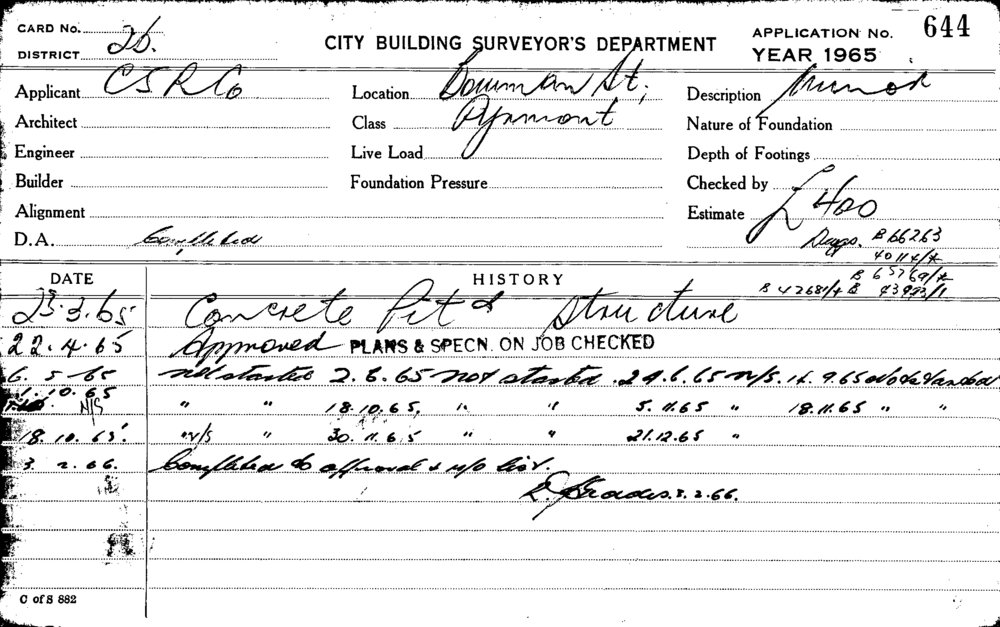 CARD No.
DISTRICT 2b.
CITY BUILDING SURVEYOR'S DEPARTMENT
APPLICATION No. 644
YEAR 1965
Applicant C S R Co
Location Bowman St;
Description Minor
Architect
Class Pyrmont
Nature of Foundation
Engineer
Live Load
Depth of Footings
Builder
Foundation Pressure
Checked by
Alignment
Estimate £ 400
D.A. Completed
B 66263
4011 4/*
B 65769/*
B 42681/4 B 43993/1
DATE HISTORY
23.3.65 Concrete Pit & Structure
22.4.65 Approved PLANS & SPECN. ON JOB CHECKED
6. 5 65 not started 2.6.65 not started 29.6.65 N/S. 14. 9.65 not started
1.10.65 N/S " " 18.10.65, " " 5.11.65 " 18.11.65 " "
18.10.65. N/S " 30.11.65 " " 21.12.65 "
3. 2.66. Completed to approval & list.
3.2.66.
C of S 882